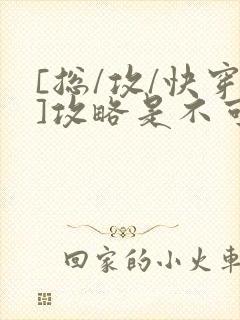 [总/攻/快穿
]攻略是不可
回家的小火车